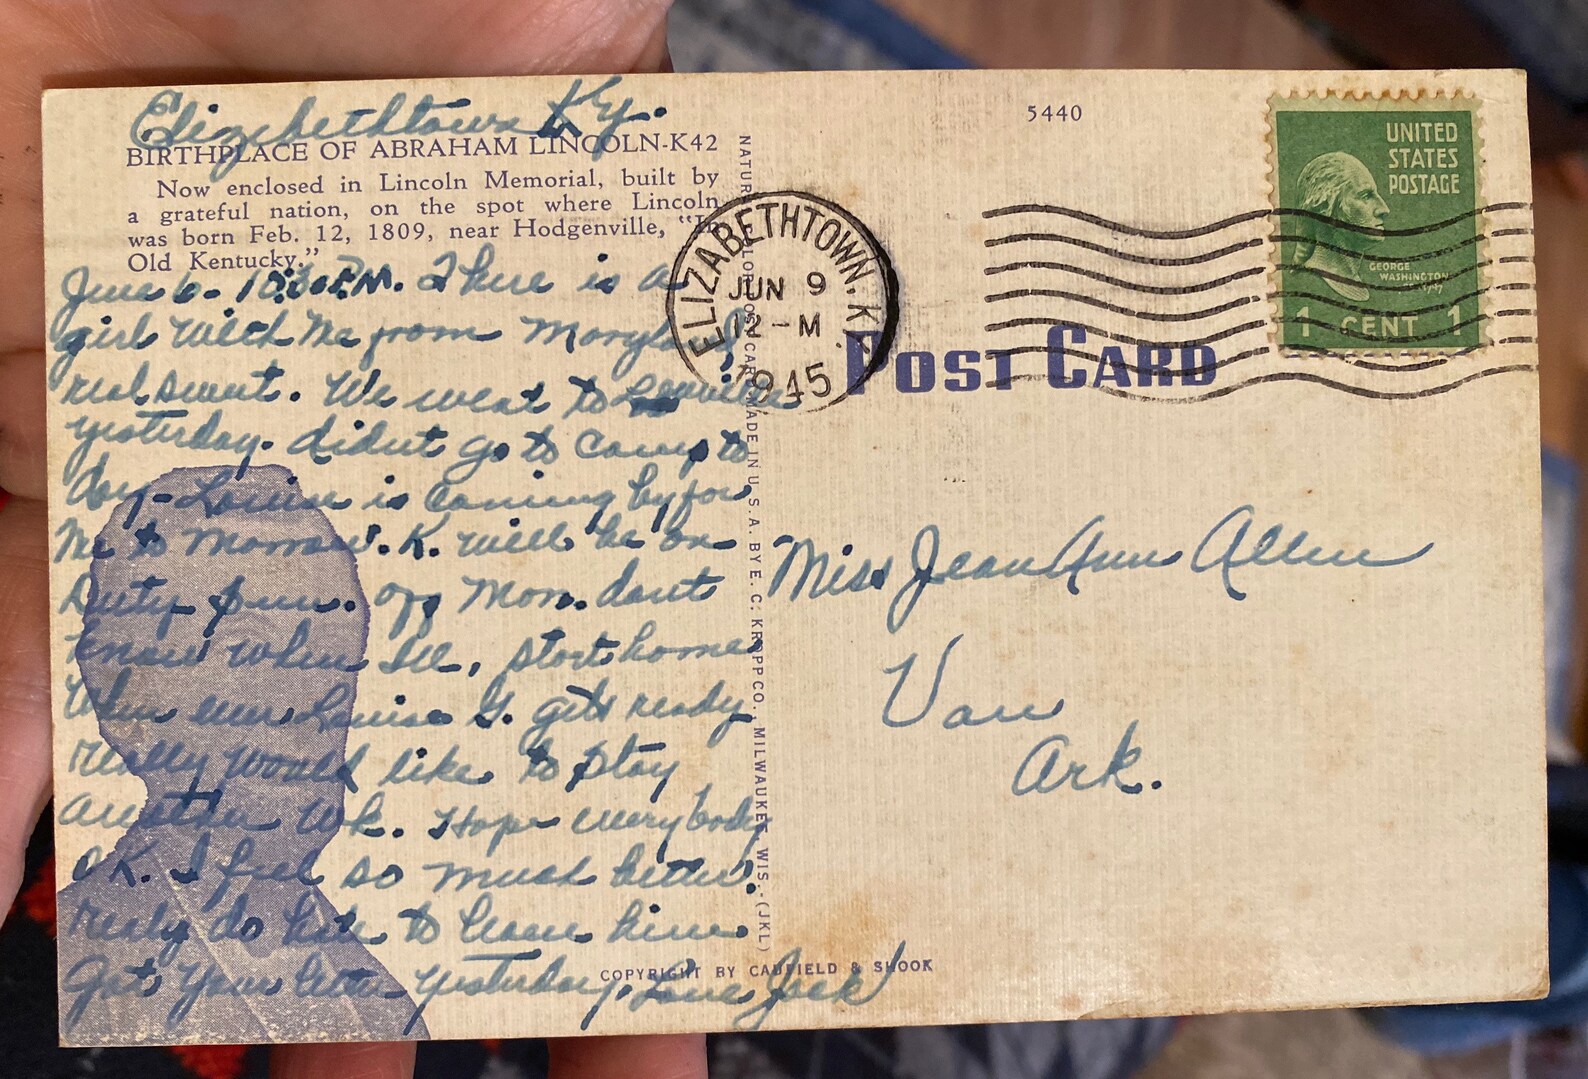 Elizabethtown Ky.
BIRTHPLACE OF ABRAHAM LINCOLN-K42
Now enclosed in Lincoln Memorial, built by
a grateful nation, on the spot where Lincoln
was born Feb. 12, 1809, near Hodgenville, "In
Old Kentucky."
June 6- 10:30 P.M. There is a
girl with me from Maryland,
real sweet. We went to
yesterday. didnt go to Camp to
day- Louise is coming by for
me to morrow. K. will be on
Duty Sun. off Mon. dont
know when Ill, start home
When ever Louise G. gets ready
really would like to stay
another wk. Hope every body
OK. I feel so much better.
really do hate to leave him.
Got your letter yesterday. Love Jack
NATURAL COLOR POST CARD MADE IN U.S.A. BY E. C. KROPP CO., MILWAUKEE, WIS.-(JKL)
COPYRIGHT BY CAUFIELD & SHOOK
5440
ELIZABETHTOWN. KY.
JUN 9
12-M
1945
POST CARD
UNITED
STATES
POSTAGE
GEORGE
WASHINGTON
1 CENT 1
Miss Jean Ann Allen
Van
Ark.